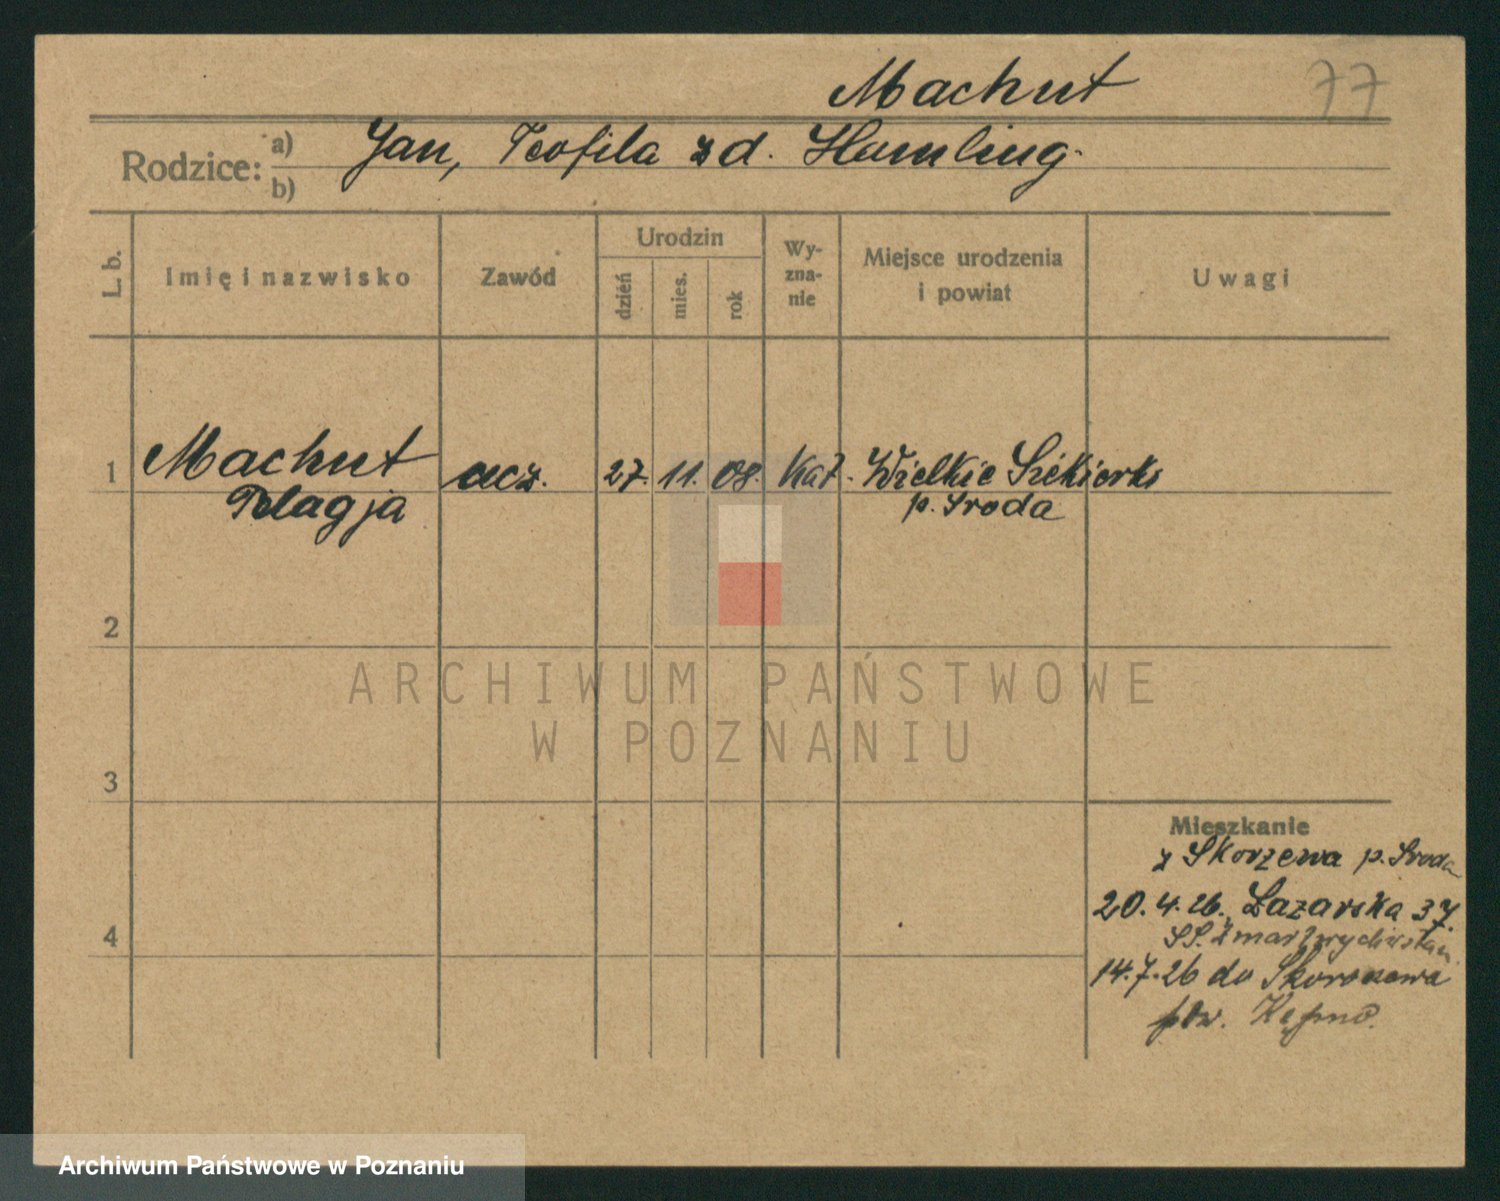 Machut
77
Rodzice: a) Jan, Teofila z d. Hamling.
b)
L. b.
Imię i nazwisko
Zawód
Urodzin
dzień
mies.
rok
Wy-
zna-
nie
Miejsce urodzenia
i powiat
Uwagi
1 Machut ucz. 27. 11. 08. Kat. Wielkie Siekierki
Pelagja p. Sroda
2
ARCHIWUM PAŃSTWOWE
W POZNANIU
3
Mieszkanie
z Skorzewa p. Sroda
20.4.26. Łazarska 37.
SS. Zmartwychwstan.
14.7.26 do Skorzewa
pow. Kępno.
4
Archiwum Państwowe w Poznaniu